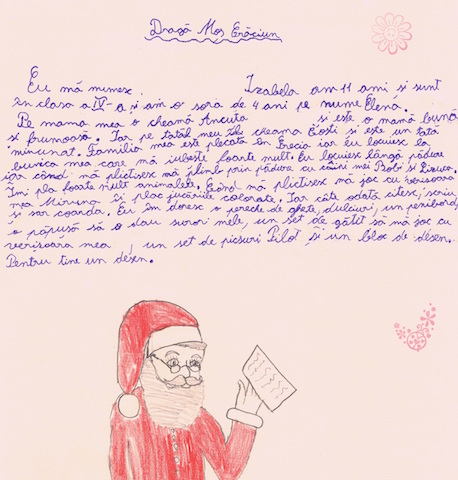 Dragă Moș Crăciun
Eu mă numesc . Izabela am 11 ani și sunt
în clasa a IV-a și am o sora de 4 ani pe nume Elena.
Pe mama mea o cheamă Ancuta și este o mamă bună
și frumoasă. Iar pe tatăl meu îl cheama și este un tată
minunat. Familia mea este plecată în Grecia iar eu locuiesc la
bunica mea care mă iubește foarte mult. Eu locuiesc lângă pădure
iar când mă plictisesc mă plimb prin pădure cu câinii mei Bobi și
Îmi pla foarte mult animalele. Când mă plictisesc ma joc cu verisoara
mea și plac jucăriile colorate. Iar câte odată citesc, scriu
și sar coarda. Eu îm doresc o pereche de ghete, dulciuri, un
o păpusă să o dau surori mele, un set de gătit să mă joc cu
verisoara mea , un set de picsuri Pilot și un bloc de desen.
Pentru tine un desen.